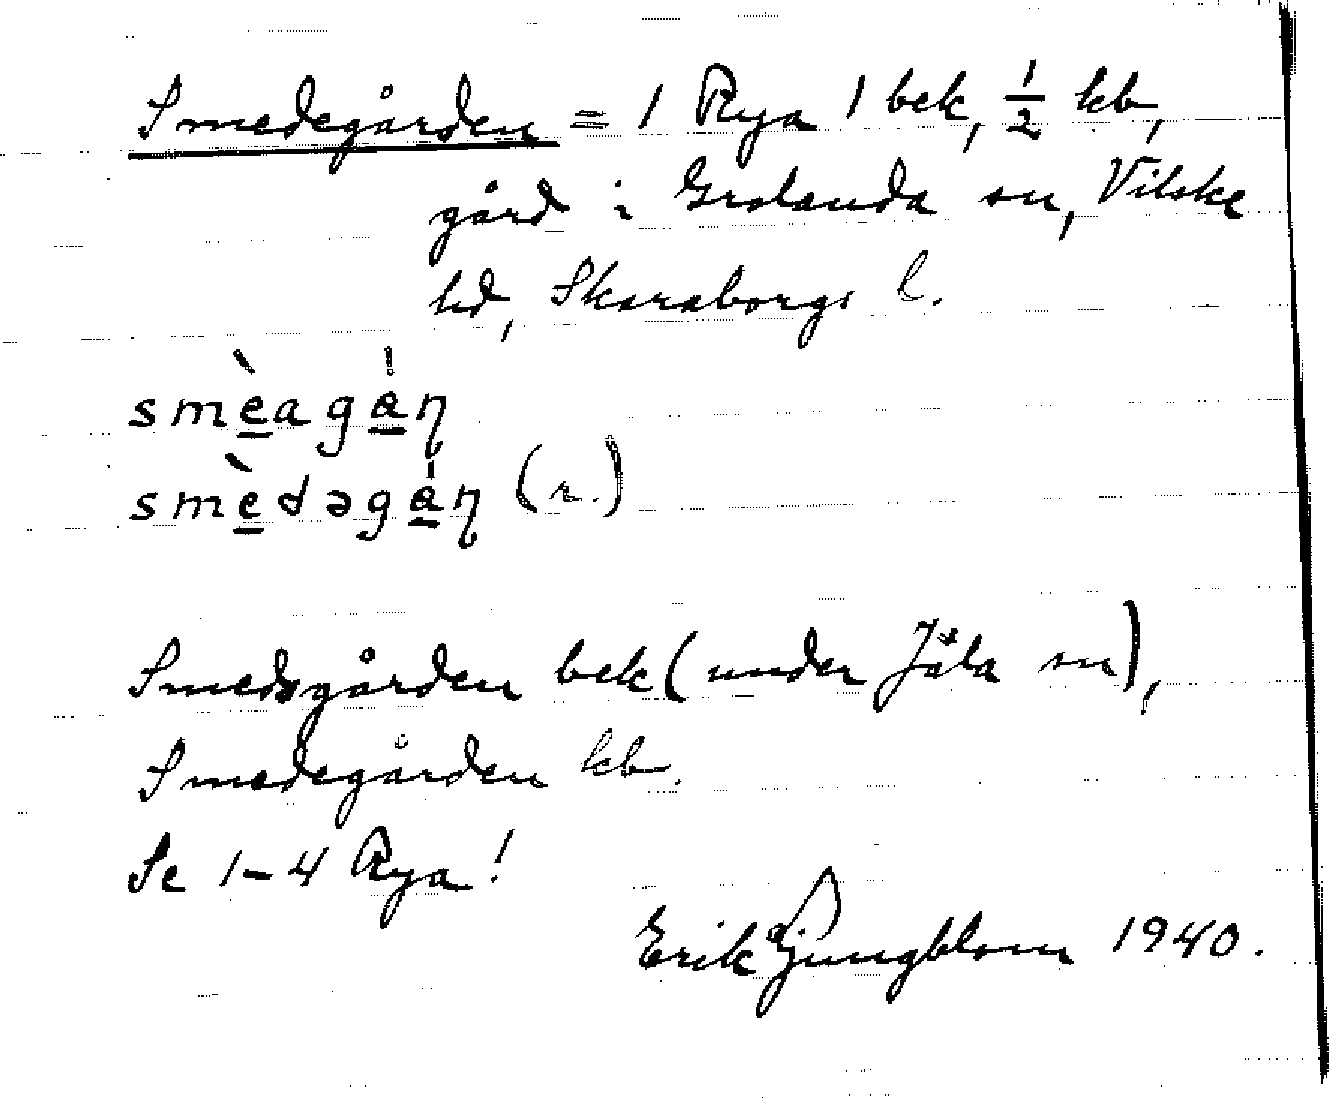 Smedegården = 1 Rya 1 bek, 1/2 kb,
gård i Grolanda sn, Vilske
hd, Skaraborgs l.
smèagạ̊ṇ
smèdəgạ̊ṇ (r.)
Smedsgården bek (under Jäla sn),
Smedegården kb.
Se 1-4 Rya!
Erik Ljungblom 1940.